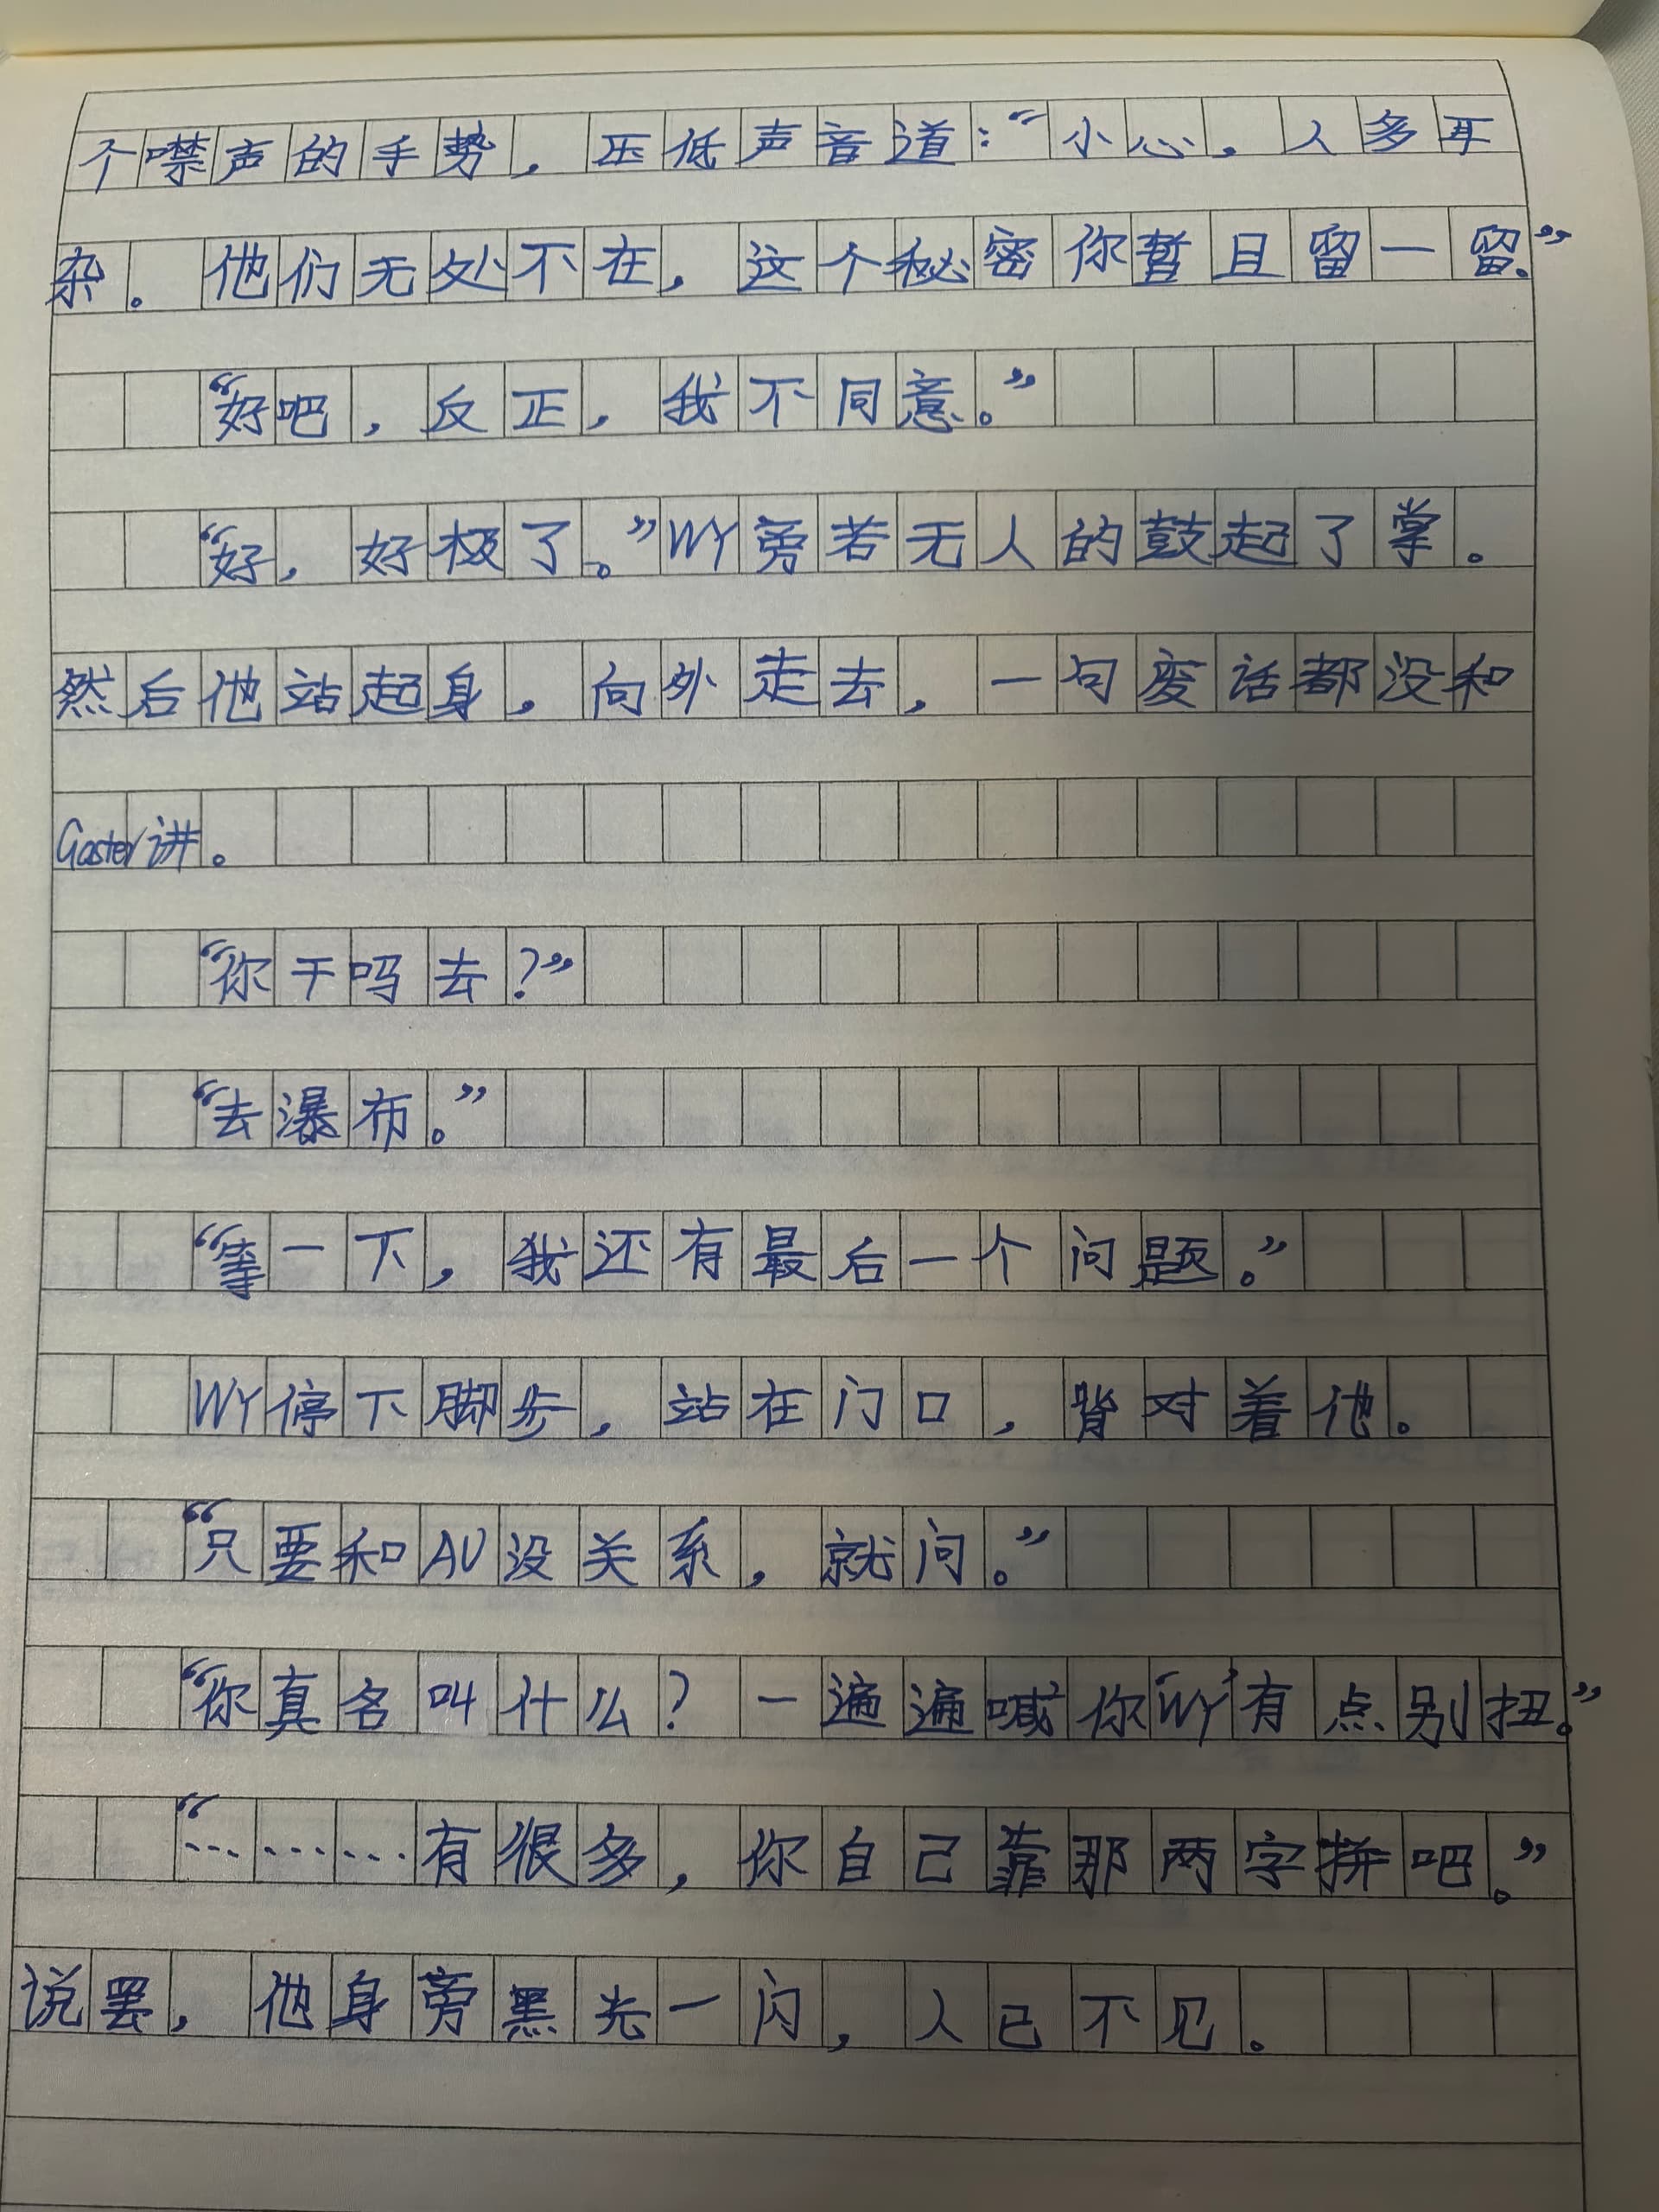 个噤声的手势，压低声音道：“小心，人多耳
杂。他们无处不在，这个秘密你暂且留一留。”
“好吧，反正，我不同意。”
“好，好极了。”WY旁若无人的鼓起了掌。
然后他站起身，向外走去，一句废话都没和
Gaster讲。
“你干吗去？”
“去瀑布。”
“等一下，我还有最后一个问题。”
WY停下脚步，站在门口，背对着他。
“只要和AU没关系，就问。”
“你真名叫什么？一遍遍喊你‘WY’有点别扭。”
“………有很多，你自己靠那两字拼吧。”
说罢，他身旁黑光一闪，人已不见。